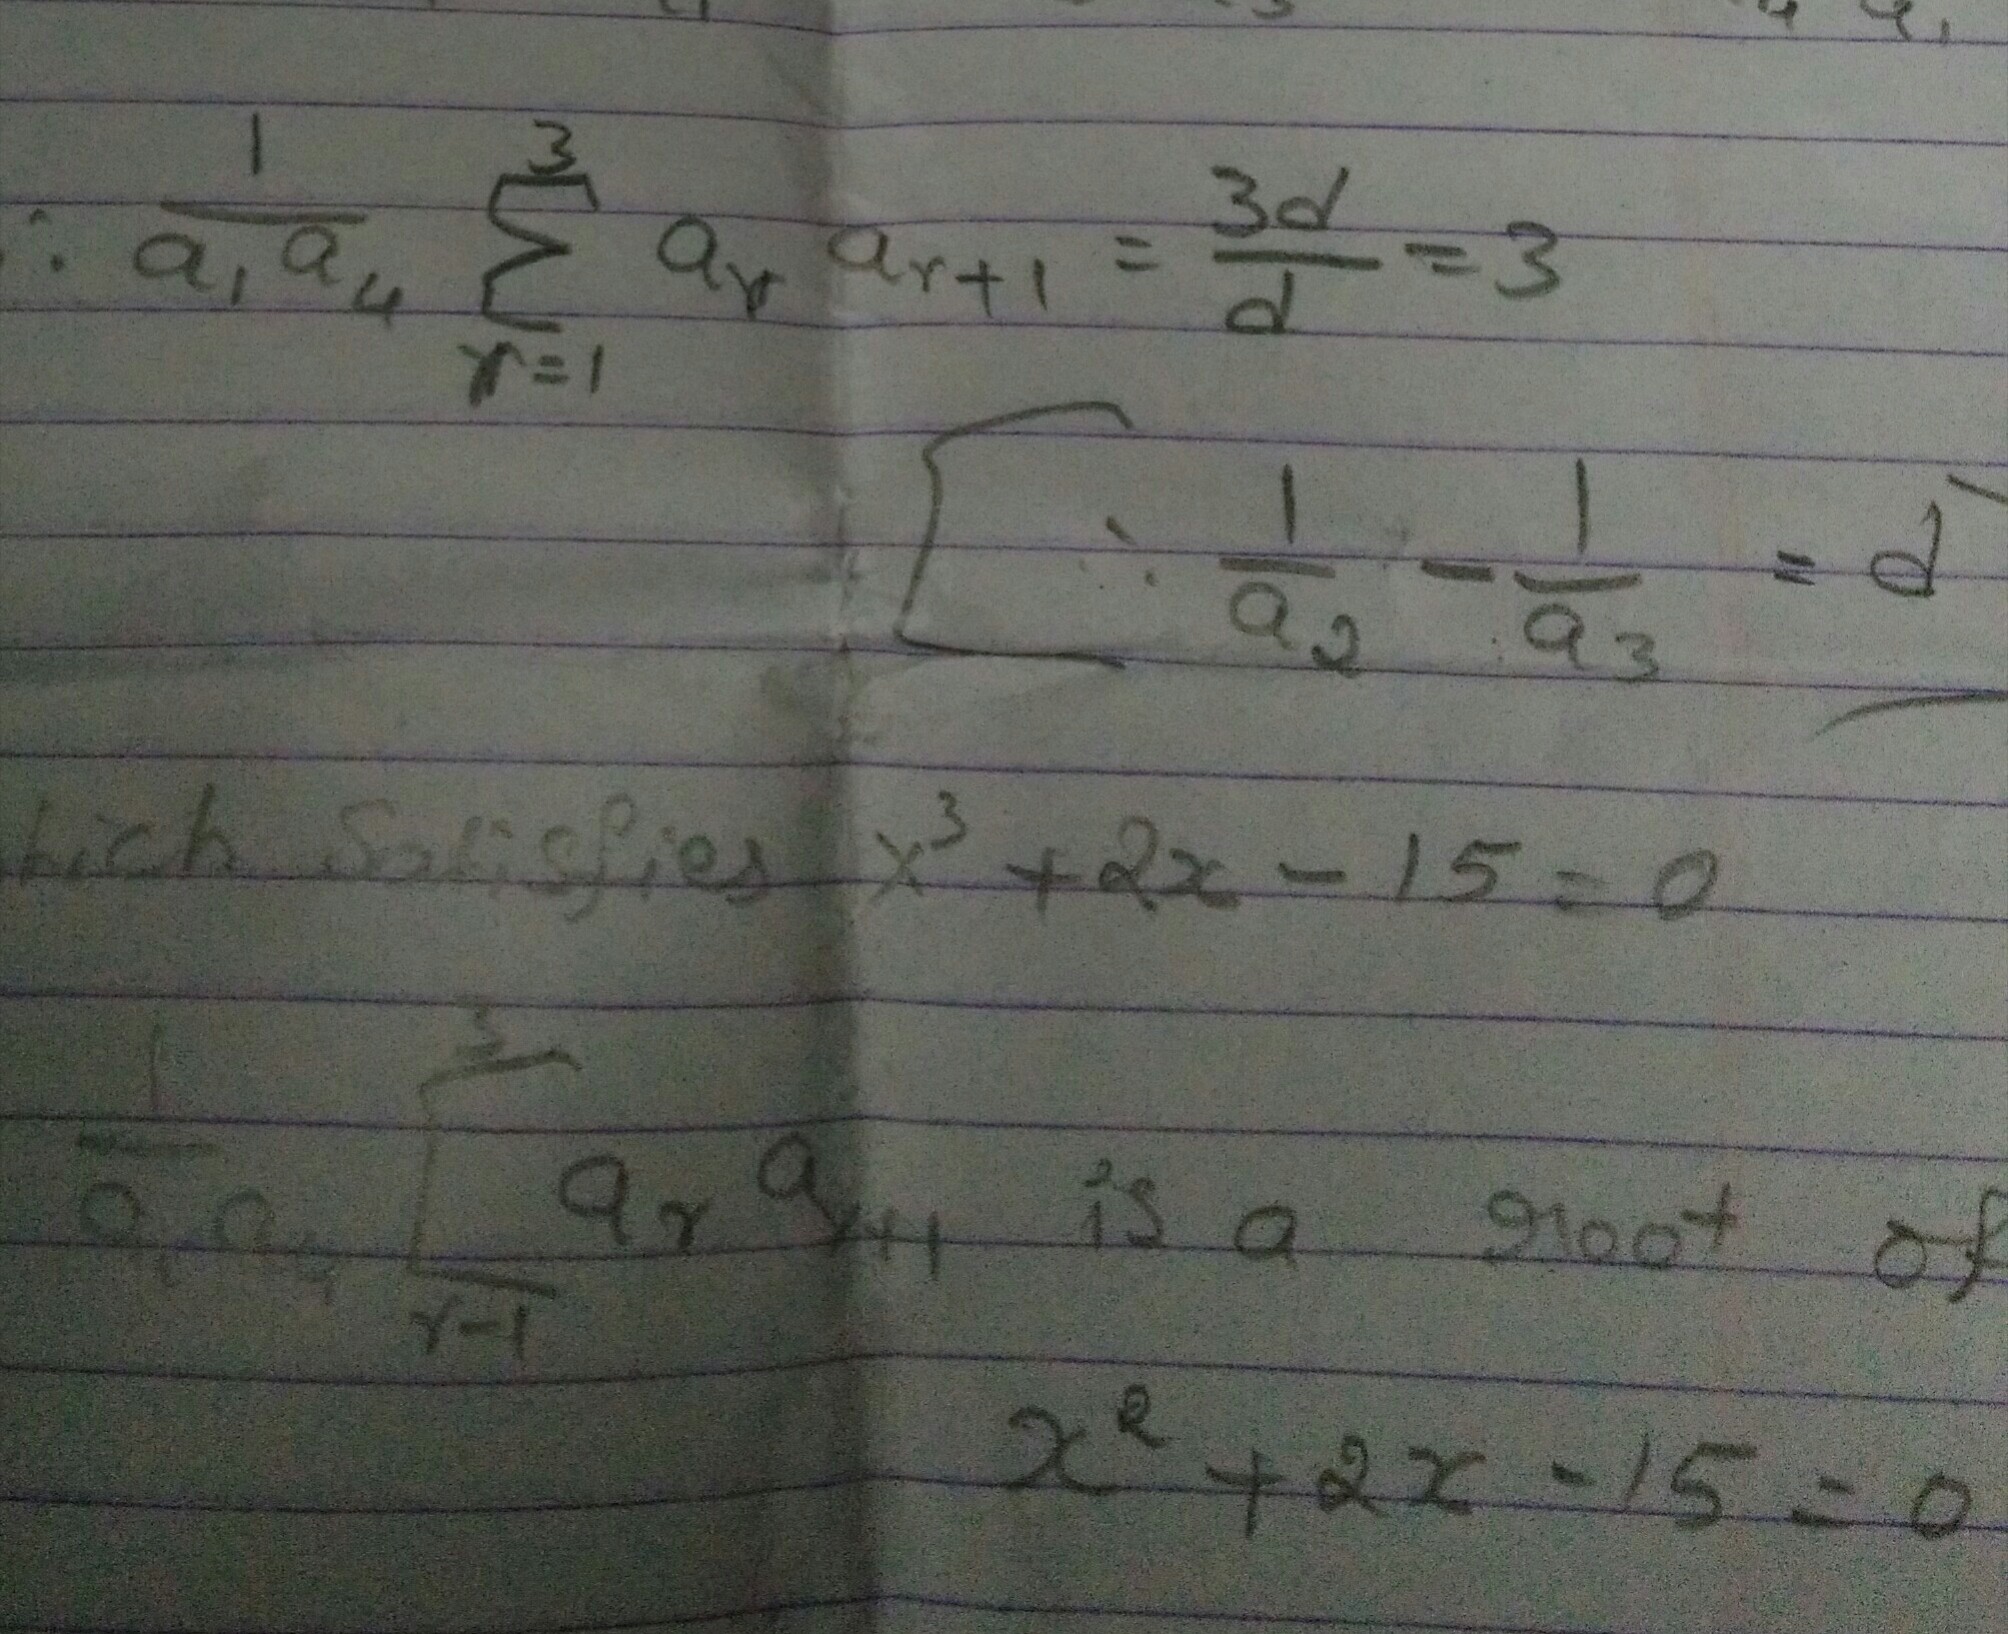 ∴ 1/(a₁a₄) Σ_{r=1}^{3} aᵣ aᵣ₊₁ = 3d/d = 3
[∵ 1/a₂ - 1/a₃ = d]
hich satisfies x³ + 2x - 15 = 0
1/(a₁a₄) Σ_{r=1}^{3} aᵣ aᵣ₊₁ is a root of
x² + 2x - 15 = 0